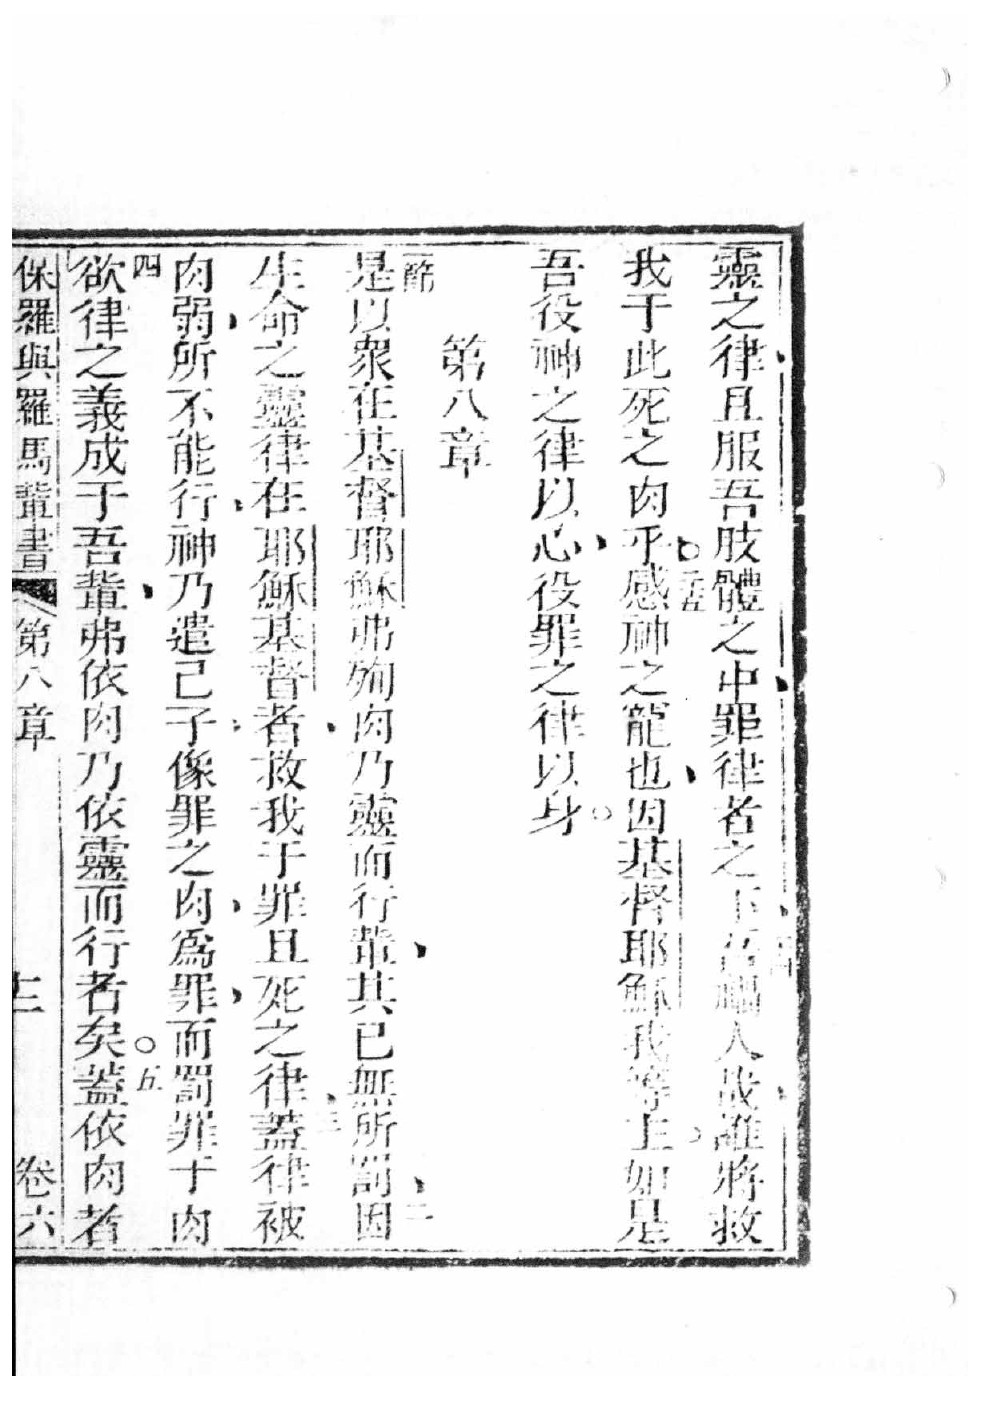 靈之律且服吾肢體之中罪律者之下
人哉誰將救
我于此死之肉乎二五感神之寵也因基督耶穌我等主如是
吾役神之律以心役罪之律以身
第八章
一節是以衆在基督耶穌弗殉肉乃靈而行輩其已無所罰二因
生命之靈律在耶穌基督者救我于罪且死之律三蓋律被
肉弱所不能行神乃遣己子像罪之肉爲罪而罰罪于肉
四欲律之義成于吾輩弗依肉乃依靈而行者矣五蓋依肉者
保羅與羅馬輩書 第八章 十二 卷六